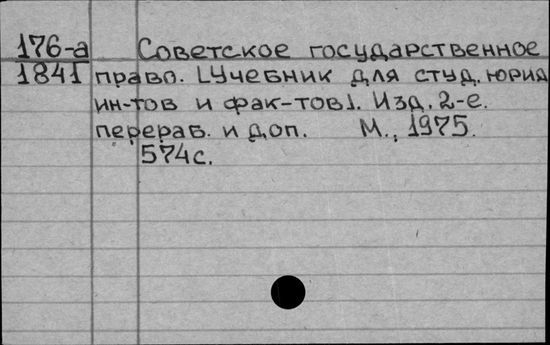 176-а Советское государственное
1841 право. [Учебник для студ. юрид
ин-тов и фак-тов]. Изд. 2-е.
перераб. и доп. М., 1975.
574с.